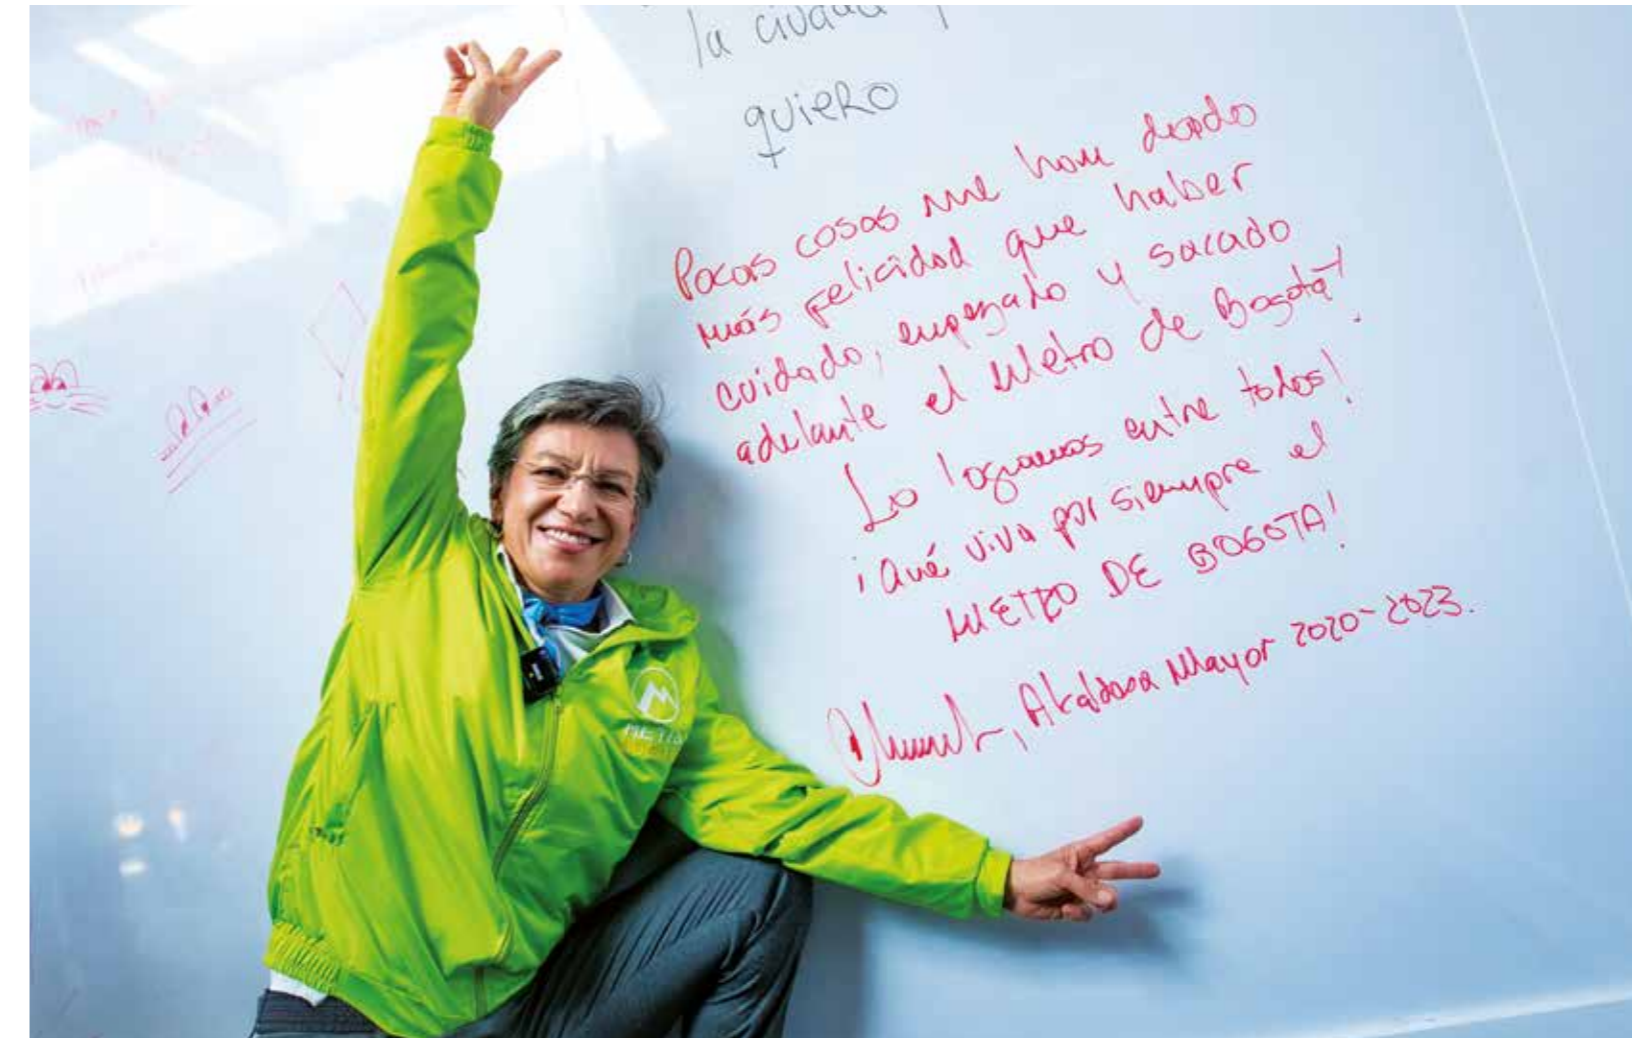 la ciudad
quiero
Pocas cosas me han dado
más felicidad que haber
cuidado, empezado y sacado
adelante el Metro de Bogotá!
Lo logramos entre todos!
¡Qué viva por siempre el
METRO DE BOGOTA!
, Alcaldesa Mayor 2020-2023.
METRO